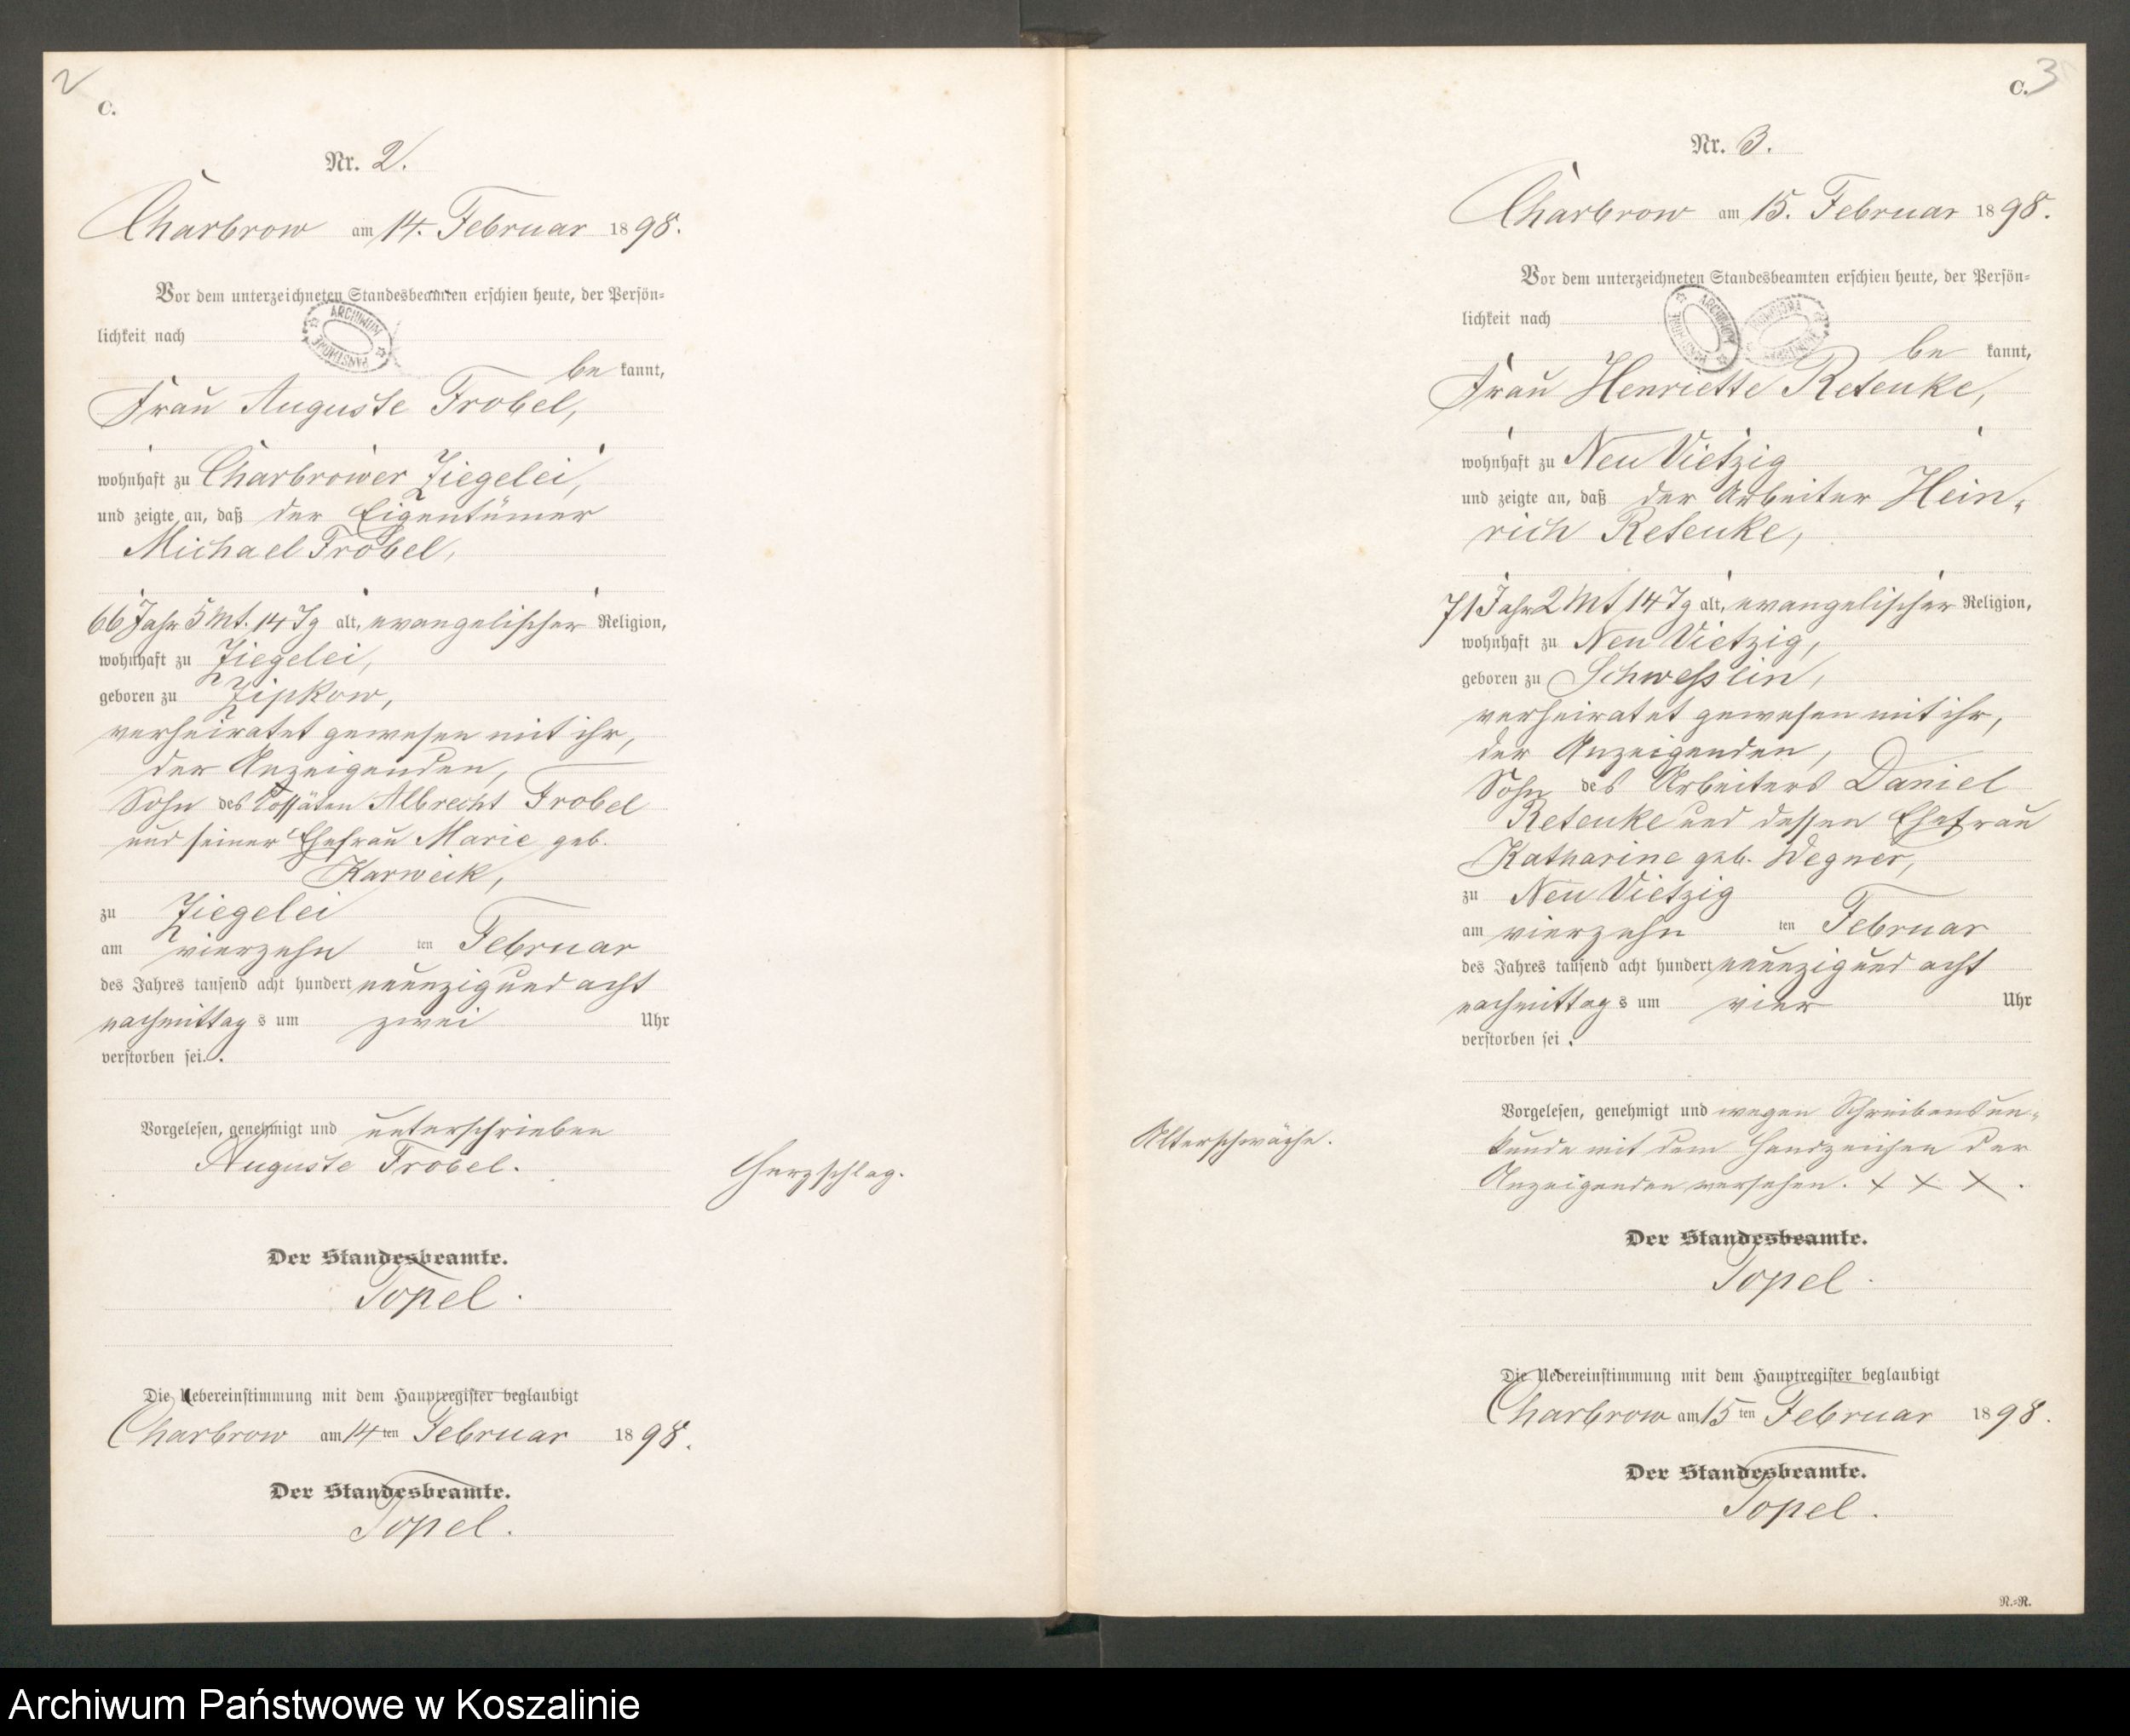 2
C.
Nr. 2.
Charbrow am 14. Februar 1898.
Vor dem unterzeichneten Standesbeamten erschien heute, der Persön-
lichkeit nach
be kannt,
Frau Auguste Trobel,
wohnhaft zu Charbrower Ziegelei,
und zeigte an, daß der Eigentümer
Michael Trobel,
66 Jahr 5 Mt. 14 Tg alt, evangelischer Religion,
wohnhaft zu Ziegelei,
geboren zu Zipkow,
verheiratet gewesen mit ihr,
der Anzeigenden,
Sohn des Kossäten Albrecht Trobel
und seiner Ehefrau Marie geb.
Karweik,
zu Ziegelei
am vierzehn ten Februar
des Jahres tausend acht hundert neunzig und acht
nachmittag s um zwei Uhr
verstorben sei.
Vorgelesen, genehmigt und unterschrieben
Auguste Trobel.
Herzschlag.
Der Standesbeamte.
Topel.
Die Uebereinstimmung mit dem Hauptregister beglaubigt
Charbrow am 14 ten Februar 1898.
Der Standesbeamte.
Topel.
C. 3
Nr. 3.
Charbrow am 15. Februar 1898.
Vor dem unterzeichneten Standesbeamten erschien heute, der Persön-
lichkeit nach
be kannt,
Frau Henriette Retenke,
wohnhaft zu Neu Vietzig
und zeigte an, daß der Arbeiter Hein-
rich Retenke,
71 Jahr 2 Mt 14 Tg alt, evangelischer Religion,
wohnhaft zu Neu Vietzig,
geboren zu Schwesslin,
verheiratet gewesen mit ihr,
der Anzeigenden,
Sohn des Arbeiters Daniel
Retenke und dessen Ehefrau
Katharine geb. Wegner,
zu Neu Vietzig
am vierzehn ten Februar
des Jahres tausend acht hundert neunzig und acht
nachmittag s um vier Uhr
verstorben sei.
Alterschwäche.
Vorgelesen, genehmigt und wegen Schreibensun-
kunde mit dem Handzeichen der
Anzeigenden versehen. x x x.
Der Standesbeamte.
Topel.
Die Uebereinstimmung mit dem Hauptregister beglaubigt
Charbrow am 15 ten Februar 1898.
Der Standesbeamte.
Topel.
R.=R.
Archiwum Państwowe w Koszalinie